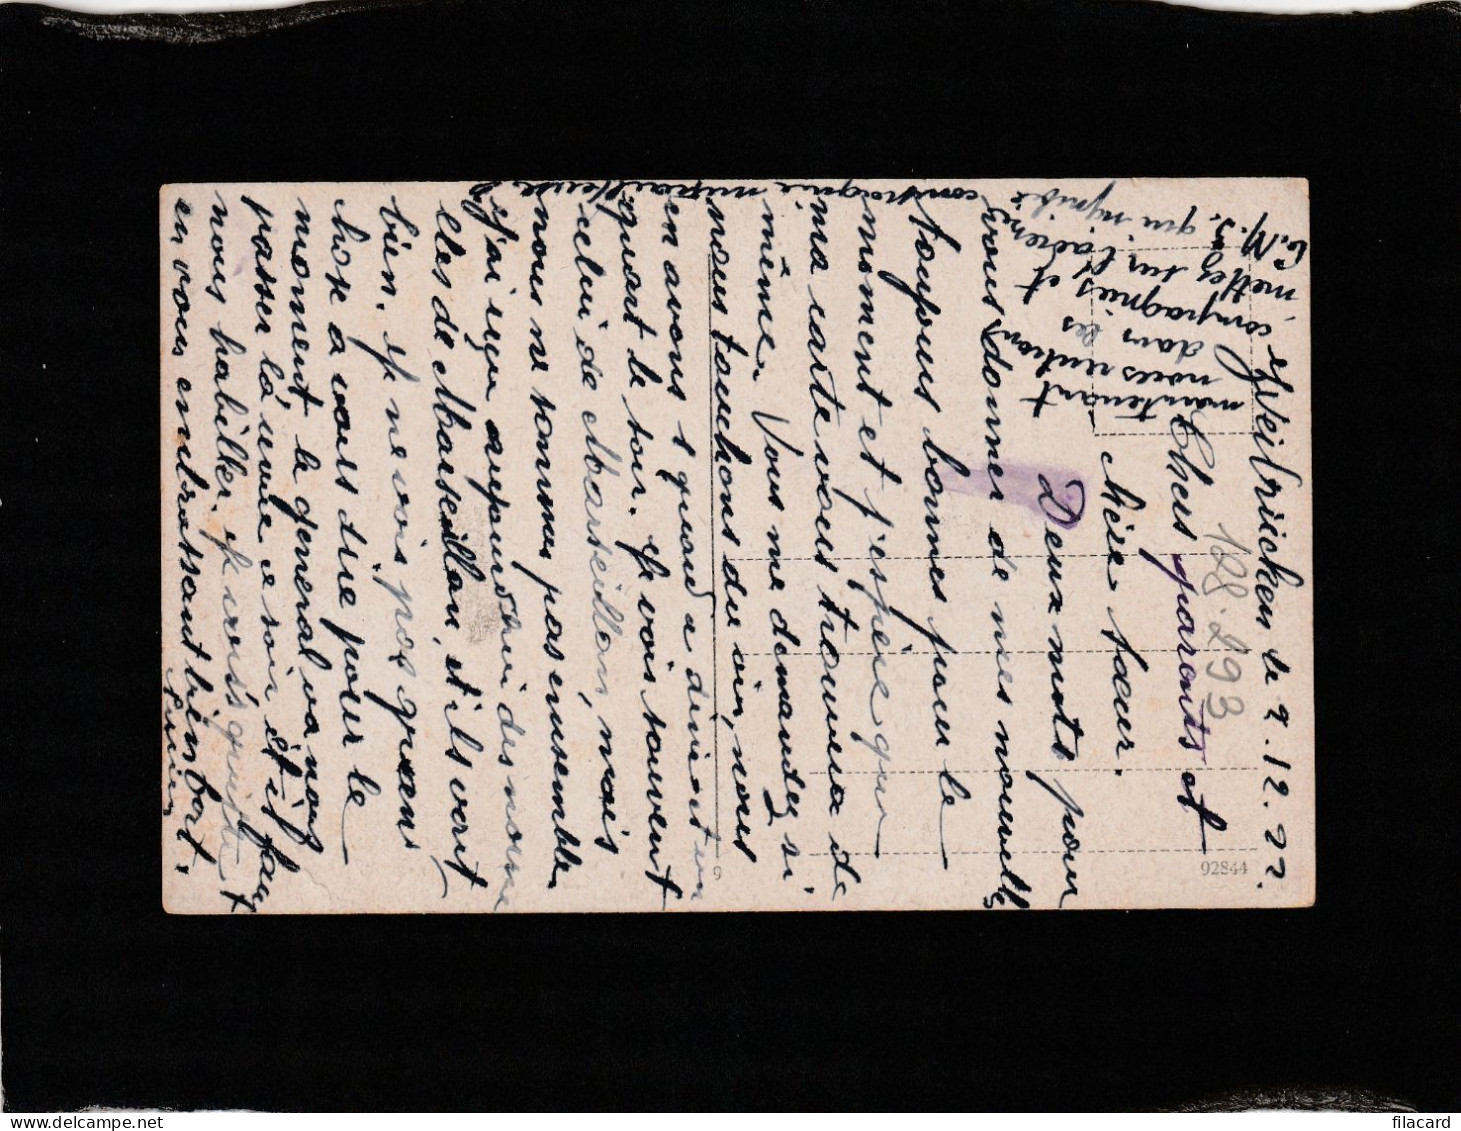 Zweibrücken le 9.12.22.
Chers parents et
chère sœur.
Deux mots pour
vous donner de mes nouvelles
toujours bonnes pour le
moment et j'espère que
ma carte vous trouvera de
même. Vous me demandez si
nous touchons du vin, nous
en avons 1 quart a diner et un
quart le soir. Je vois souvent
celui de Marseillan, mais
nous ne sommes pas ensemble.
j'ai reçu aujourd'hui des nouve
lles de Marseillan, et ils vont
bien. Je ne vois pas grand
chose a vous dire pour le
moment le general va nous
passer là une e soir et il faut
nous habiller. Je vous quitte
en vous embrassant bien fort.
maintenant
nous rentrons
dans les
compagnies et
mettez sur l'adresse
C.M.3. qui signifie
compagnie mitrailleuse 3
128.293
92844
9